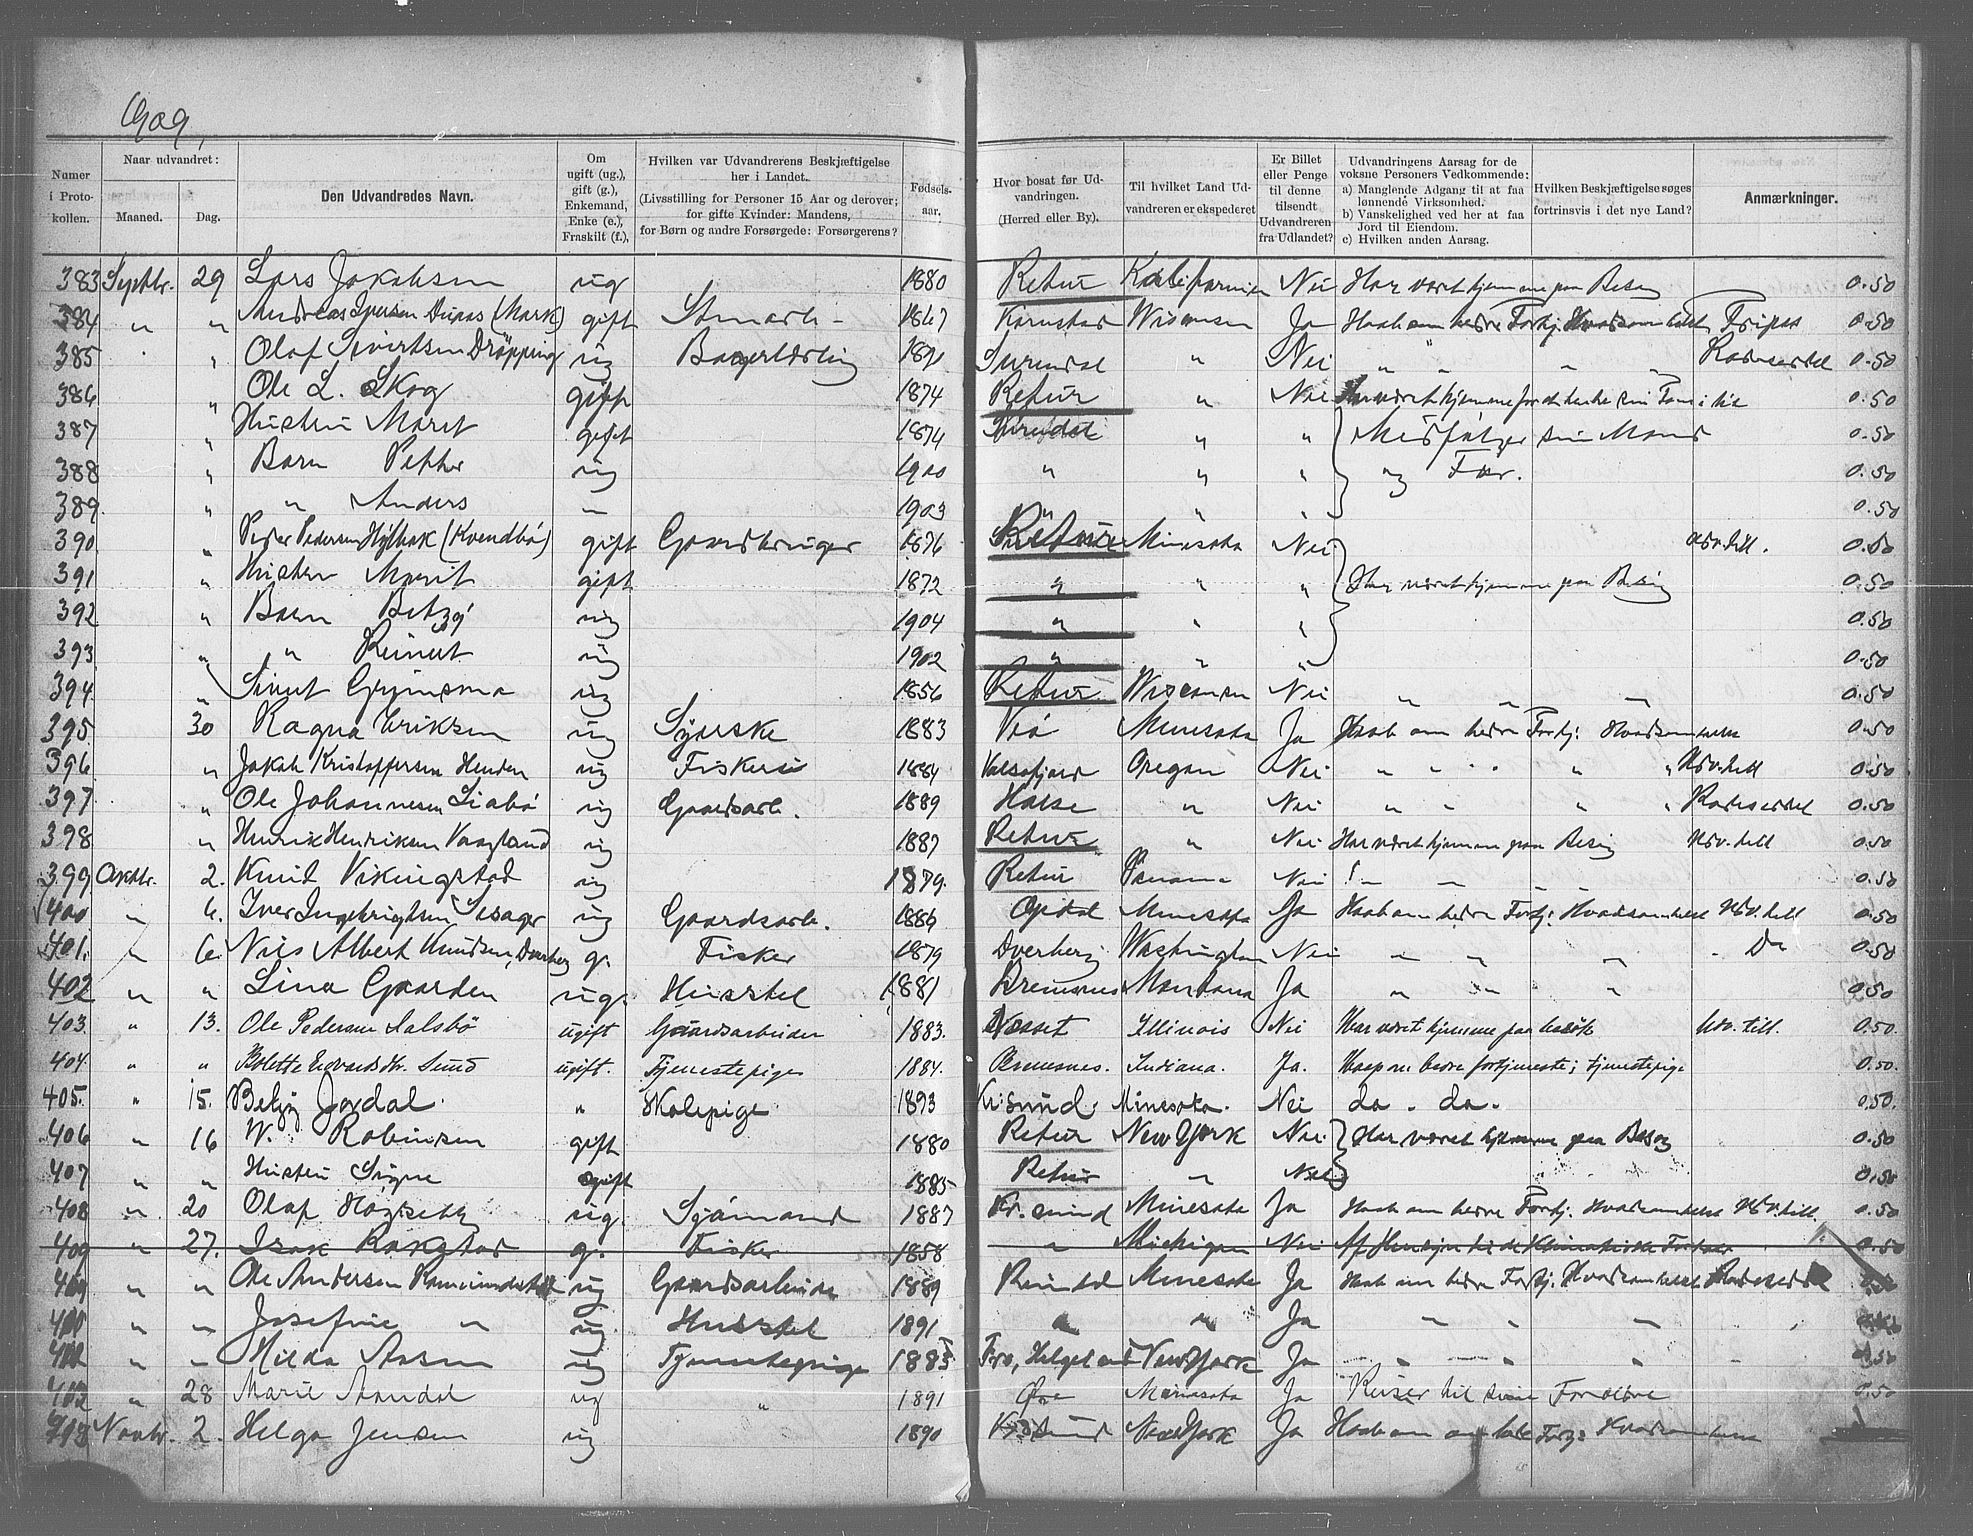 1909,
Numer i Protokollen.
Naar udvandret:
Maaned.
Dag.
Den Udvandredes Navn.
Om ugift (ug.), gift (g.), Enkemand, Enke (e.), Fraskilt (f.),
Hvilken var Udvandrerens Beskjæftigelse her i Landet. (Livsstilling for Personer 15 Aar og derover; for gifte Kvinder: Mandens, for Børn og andre Forsørgede: Forsørgerens?
Fødselsaar.
Hvor bosat før Udvandringen. (Herred eller By).
Til hvilket Land Udvandreren er ekspederet
Er Billet eller Penge til denne tilsendt Udvandreren fra Udlandet?
Udvandringens Aarsag for de voksne Personers Vedkommende: a) Manglende Adgang til at faa lønnende Virksomhed. b) Vanskelighed ved her at faa Jord til Eiendom. c) Hvilken anden Aarsag.
Hvilken Beskjæftigelse søges fortrinsvis i det nye Land?
Anmærkninger.
383 Septbr. 29 Lars Jakobsen ug 1880 Retur Kalifornien Nei Har været hjemme paa Besøg 0.50
384 " " Andreas Iversen (Mark) gift 1867 Wisconsin Ja Haab om bedre Fortj. Hvadsomhelst 0.50
385 " Olaf Sivertsen Dröpping ug 1891 Surendal " Nei " " " " Radesedel 0.50
386 " Ole L. Skog gift 1874 Retur " Nei Har været hjemme for at hente sin Familie 0.50
387 " Hustru Marit gift 1874 Surendal " " Medfølger sin Mand 0.50
388 " Barn Petter ug 1900 " " " og Far. 0.50
389 " " Anders " 1903 " " " 0.50
390 " Peder Pedersen (Kvendbø) gift Gaardbruger 1876 Retur Minesota Nei Udv. till. 0.50
391 " Hustru Marit gift 1872 " " " Har været hjemme paa Besøg 0.50
392 " Barn Betzy ug 1904 " " " 0.50
393 " " Reinert ug 1902 " " " 0.50
394 " Sivert Grimsmo ug 1856 Retur Wisconsin Nei " " " 0.50
395 30 Ragna Eriksen ug Syerske 1883 Minesota Ja Haab om bedre Fortj. Hvadsomhelst 0.50
396 " Jakob Kristoffersen Henden ug Fiskeri 1884 Valsøfjord Oregon Nei " " " " " Udv. till 0.50
397 " Ole Johannesen Liabø ug Gaardsarb. 1889 Halse " Nei " " " " Radesedel 0.50
398 " Henrik Henriksen Vaagland ug 1887 Retur " Nei Har været hjemme paa Besøg Udv. till 0.50
399 Oktbr. 2. Knud Vikingstad ug 1879. Retur Panama Nei " " " " 0.50
400 " 6. Iver Ingebrigtsen ug Gaardsarb. 1886 Opdal Minesota Ja Haab om bedre Fortj. Hvadsomhelst Udv. till 0.50
401. " 6 Nils Albert Knudsen, Dverberg g. Fisker 1879 Dverberg Washington Nei " " " Do 0.50
402 " " Lina Gaarden ug. Husstel 1881 Bremsnes Montana Ja " " " 0.50
403. " 13. Ole Pedersen ugift Gaardsarbeider 1883. Nesset Illinois Nei Har været hjemme paa besök Udv. till. 0.50.
404. " " Bolette Edvardsdtr. Sund ugift. Tjenestepige 1884. Bremsnes. Indiana. Ja. Haap om bedre fortjeneste; tjenestepige 0.50.
405. " 15. Betzy Jordal. " Skolepige 1893 Kr:sund. Minesota. Nei do. do. 0.50.
406 " 16 W. Robinsen gift 1880 Retur New York Nei. Har været hjemme paa Besøg 0.50
407 " " Hustru Signe gift 1885 Retur " Nei 0.50
408 " 20 Olaf ug. Sjömand 1887 Kr. sund Minesota Ja Haab om bedre Fortj. Hvadsomhelst Udv. till. 0.50
409 " 27. Isak g. Fisker 1858 " Michigan Nei Af Hensyn til de Klimatiske Forhold 0.50
409 " " Ole Andersen ug Gaardsarbeider 1889 Rindal Minesota Ja Haab om bedre Fortj. Hvadsomhelst Radesedel 0.50
" " Josefine " ug. Husstel 1891 " " Ja " " " "
" " Hilda Aasen ug Tjenestepige 1885 New York Ja " " " " " 0.50
" 28 Marie Aandal ug " 1891 Øre Minesota Ja Reiser til sine Forældre 0.50
413 Novbr. 2. Helga Jensen ug 1890 Kr. sund New York Ja Haab om Fortj: Hvadsomhelst